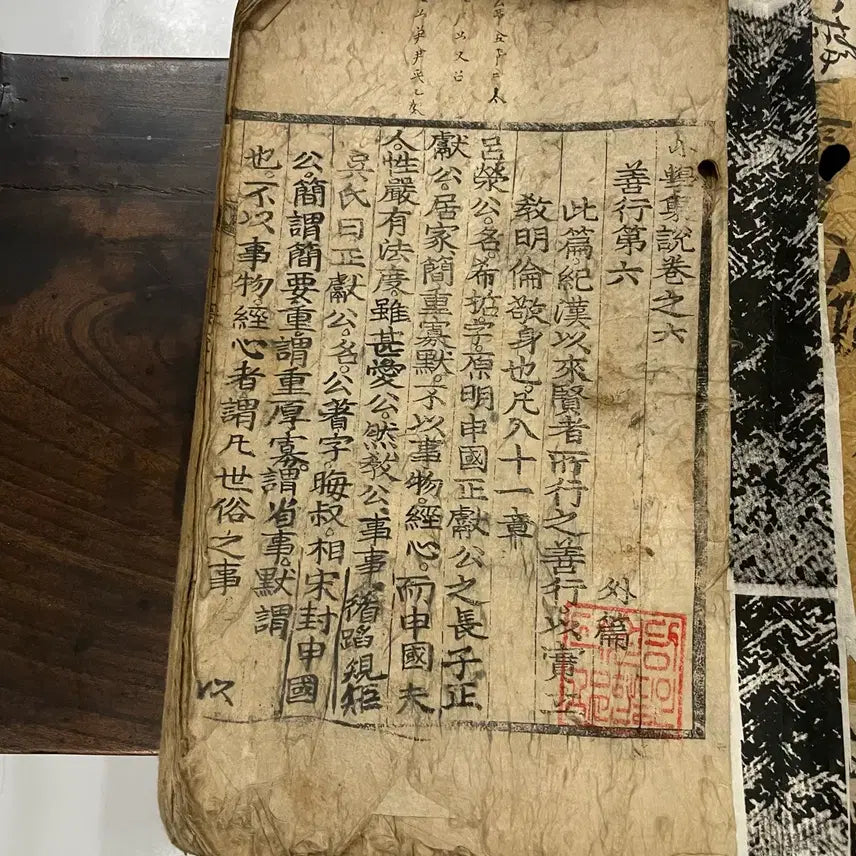 小學集說卷之六
善行第六
外篇
此篇紀漢以來賢者所行之善行以實立
敎明倫敬身也凡八十一章
呂滎公名希哲字原明申國正獻公之長子正
獻公居家簡重寡默不以事物經心而申國夫
人性嚴有法度雖甚愛公然敎公事事循蹈規矩
吳氏曰正獻公名公著字晦叔相宋封申國
公簡謂簡要重謂重厚寡謂省事默謂
也不以事物經心者謂凡世俗之事
以